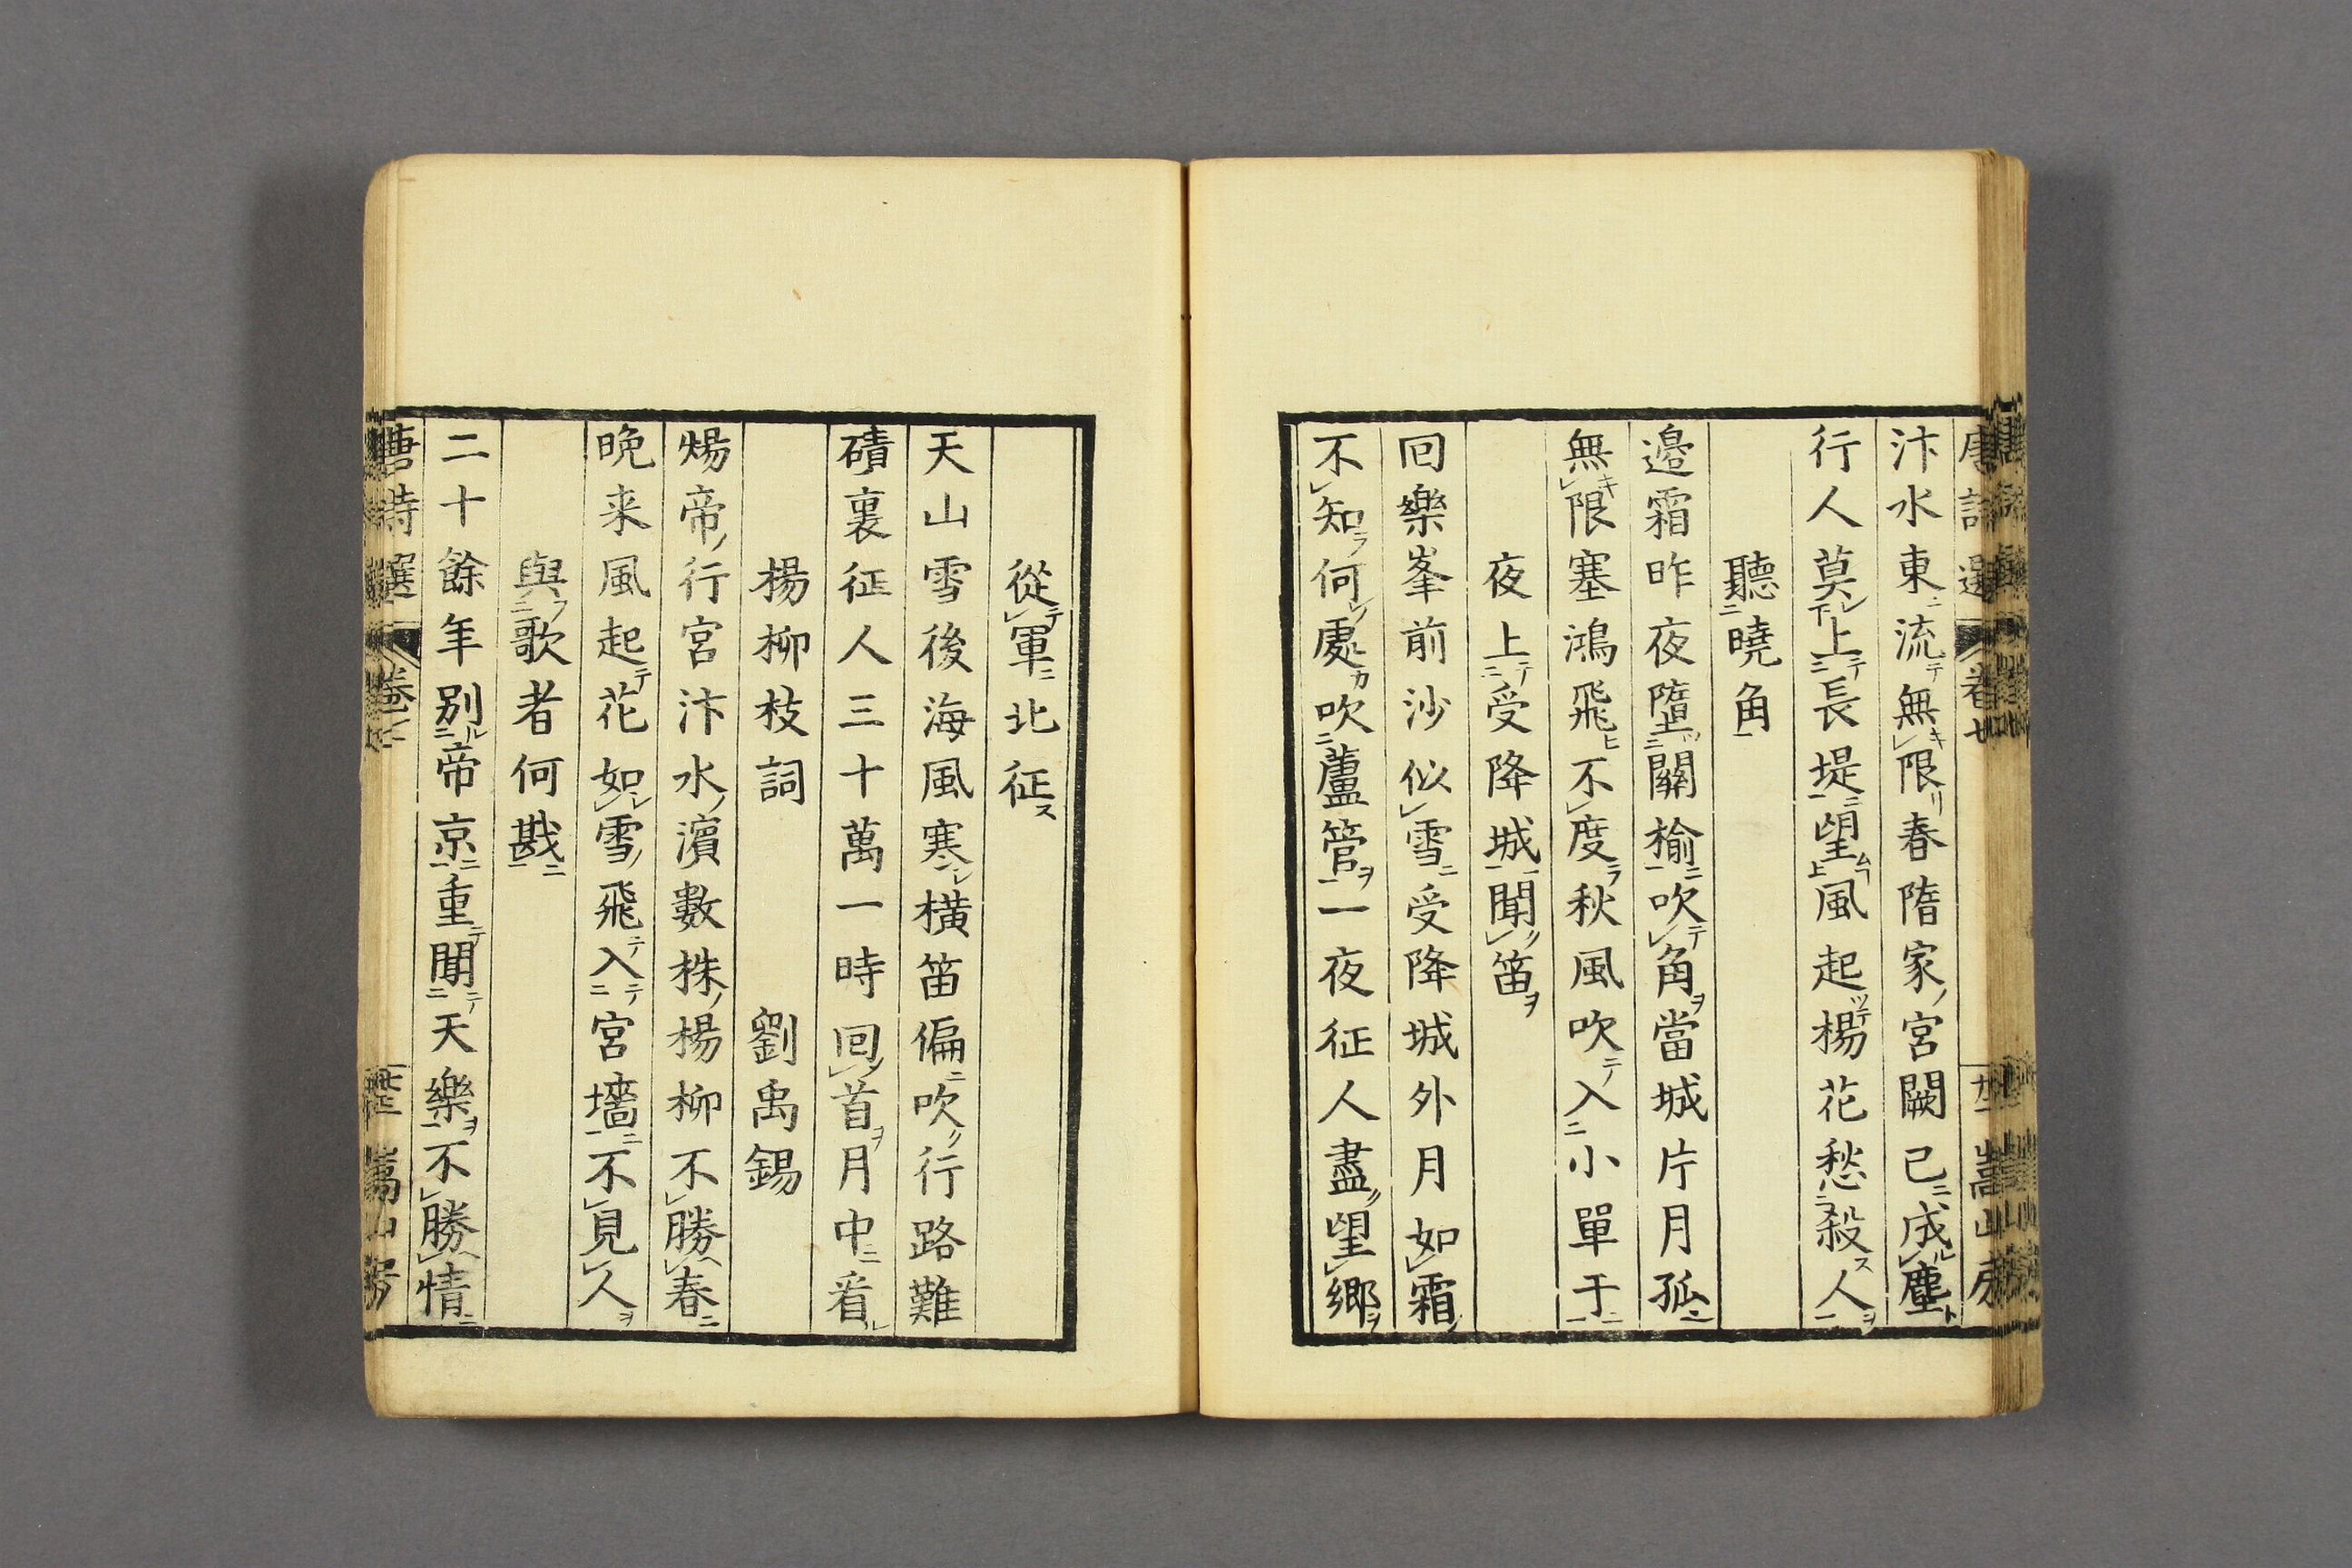 汴水東流無限春隋家宮闕已成塵
行人莫上長堤望風起楊花愁殺人
聽曉角
邉霜昨夜墮關榆吹角當城片月孤
無限塞鴻飛不度秋風吹入小單于
夜上受降城聞笛
回樂峯前沙似雪受降城外月如霜
不知何處吹蘆管一夜征人盡望鄉
從軍北征
天山雪後海風寒橫笛偏吹行路難
磧裏征人三十萬一時回首月中看
楊柳枝詞 劉禹錫
煬帝行宮汴水濵數株楊柳不勝春
晩来風起花如雪飛入宮墻不見人
與歌者何戡
二十餘年別帝京重聞天樂不勝情
唐詩選